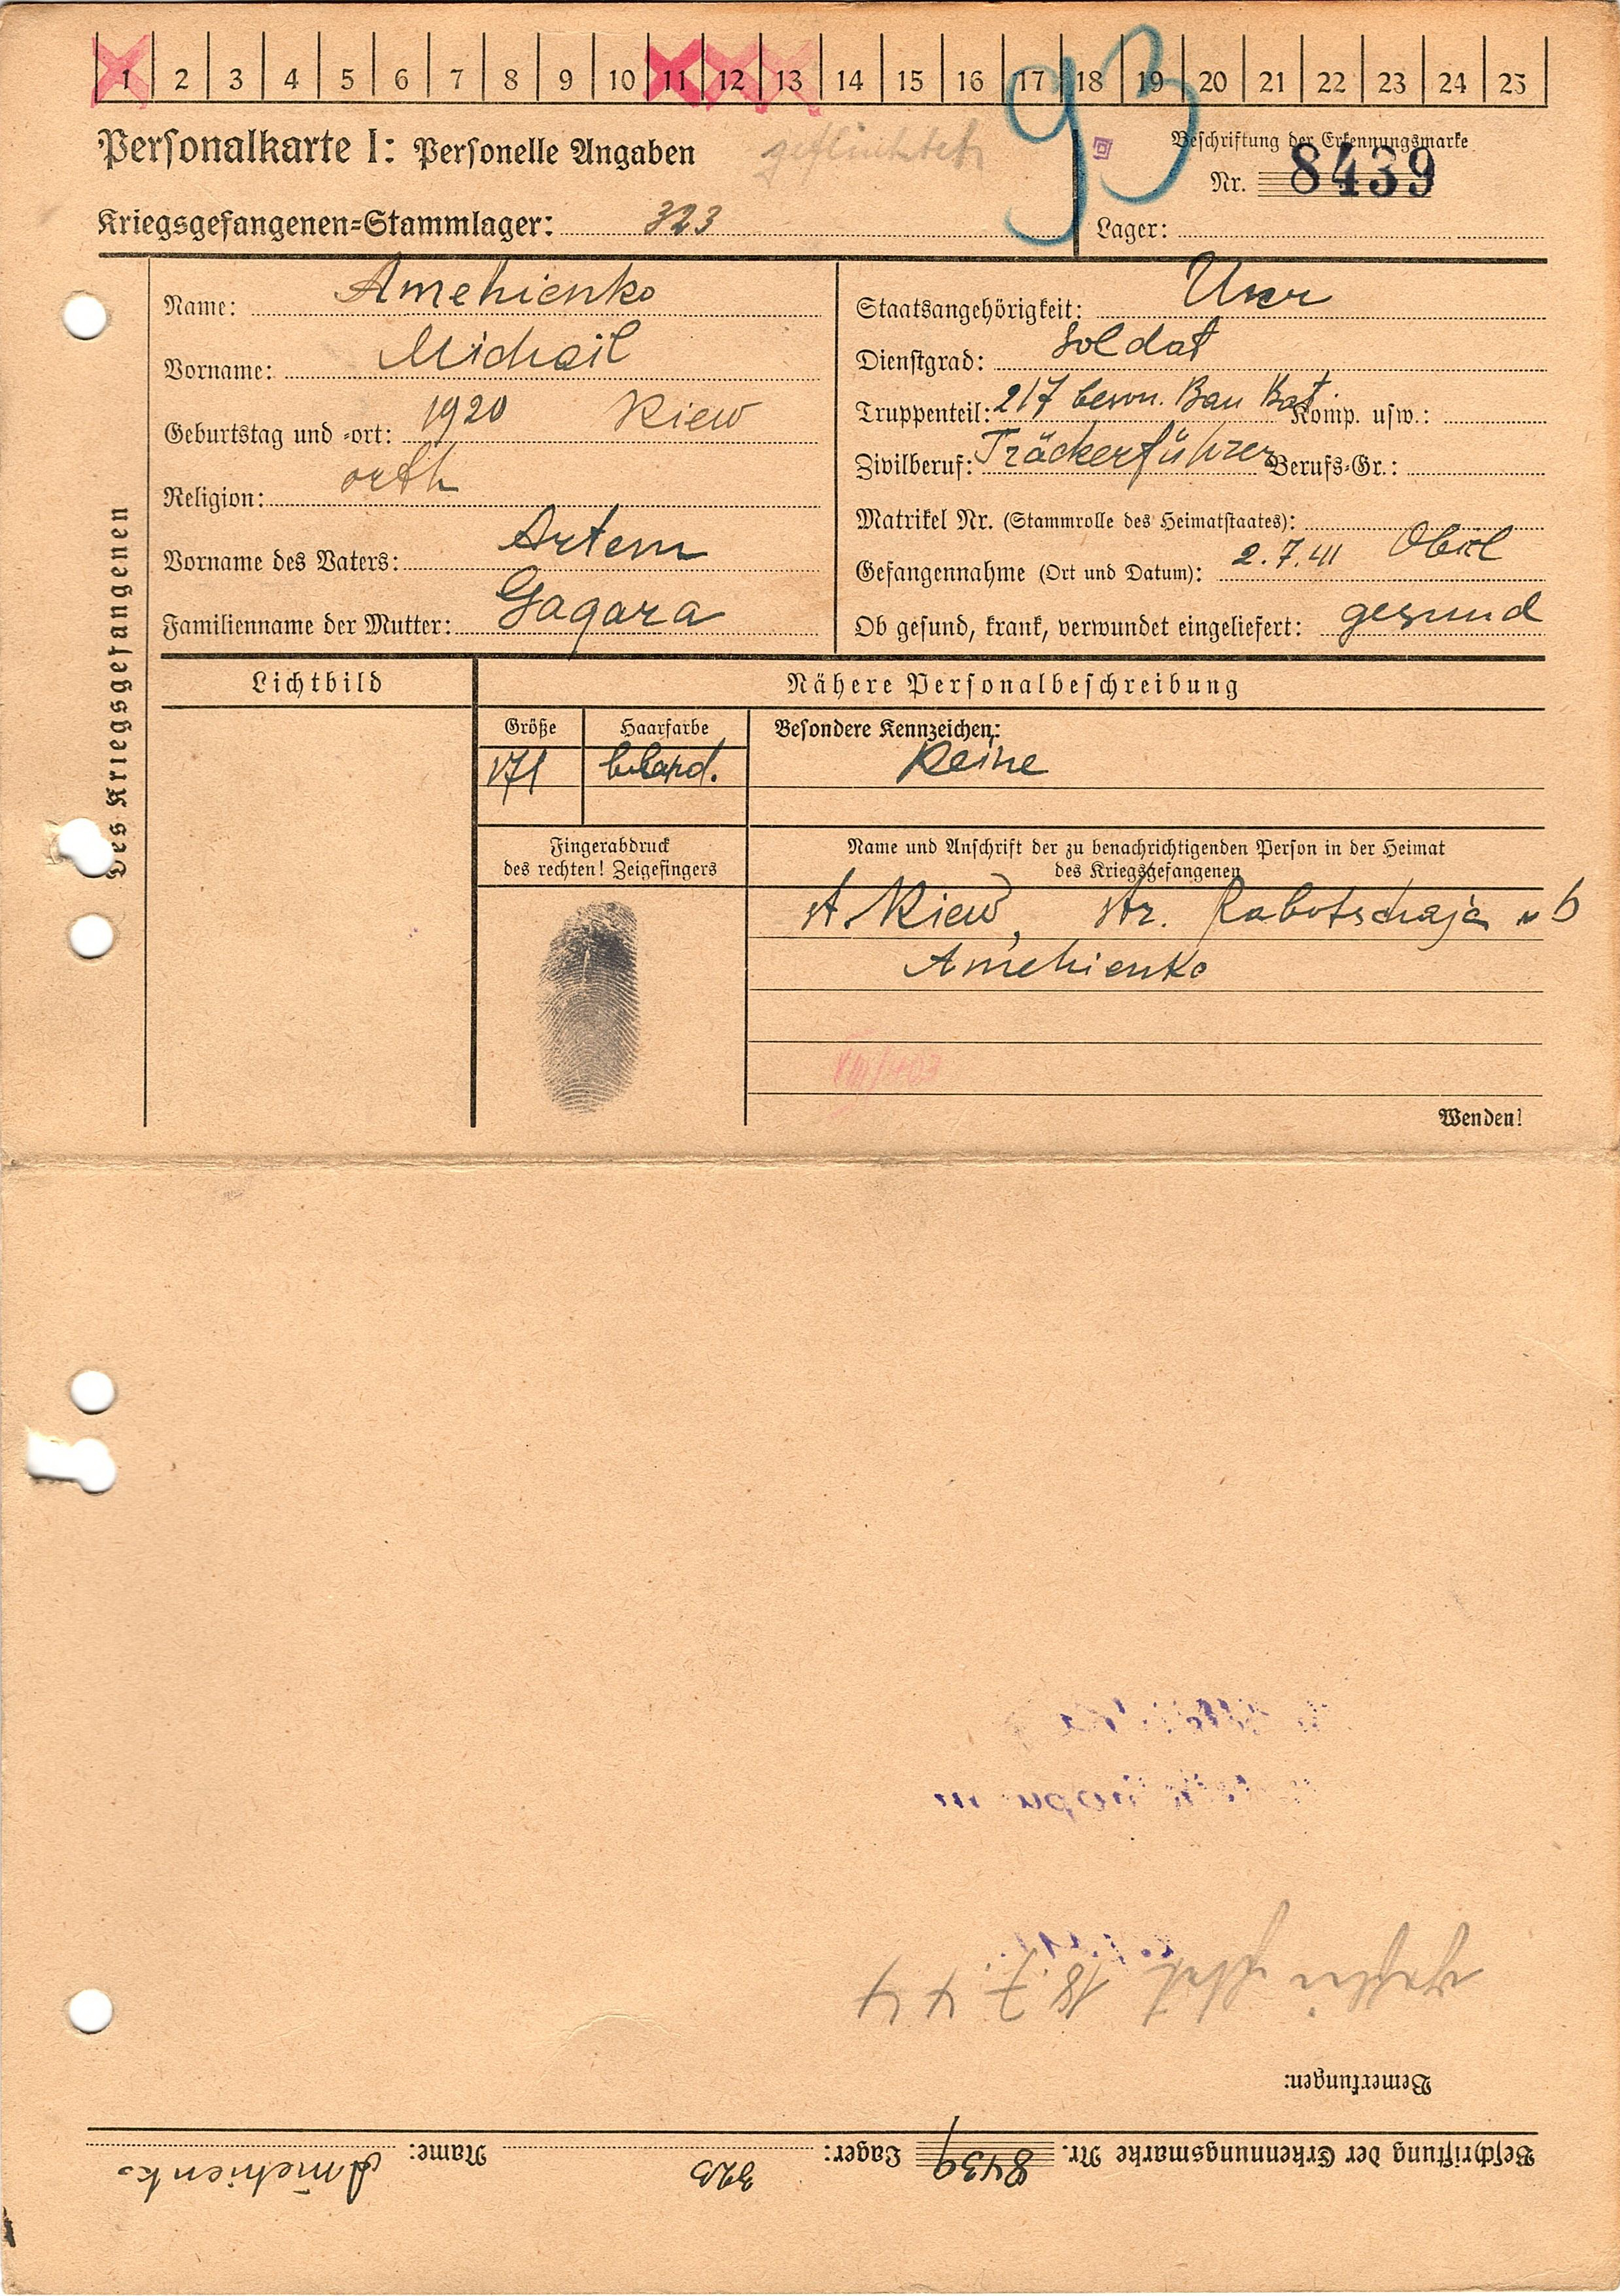 1 2 3 4 5 6 7 8 9 10 11 12 13 14 15 16 17 18 19 20 21 22 23 24 25
93
Personalkarte I: Personelle Angaben
geflüchtet
Beschriftung der Erkennungsmarke
Nr. 8439
Kriegsgefangenen=Stammlager: 323
Lager:
Des Kriegsgefangenen
Name: Amehienko
Vorname: Michail
Geburtstag und =ort: 1920 Kiew
Religion: orth
Vorname des Vaters: Artem
Familienname der Mutter: Gagara
Staatsangehörigkeit: Ukr
Dienstgrad: Soldat
Truppenteil: 217 Bau Bat. Komp. usw.:
Zivilberuf: Träckerführer Berufs=Gr.:
Matrikel Nr. (Stammrolle des Heimatstaates):
Gefangennahme (Ort und Datum): 2.7.41
Ob gesund, krank, verwundet eingeliefert: gesund
Lichtbild
Nähere Personalbeschreibung
Größe
171
Haarfarbe
Besondere Kennzeichen:
Keine
Fingerabdruck
des rechten! Zeigefingers
Name und Anschrift der zu benachrichtigenden Person in der Heimat
des Kriegsgefangenen
st. Kiew, str. Rabotschaja 6
Amehienko
VIII/403
Wenden!
Beschriftung der Erkennungsmarke Nr. 8439 Lager: 323 Name: Amehienko
Bemerkungen:
geflüchtet 18.7.44